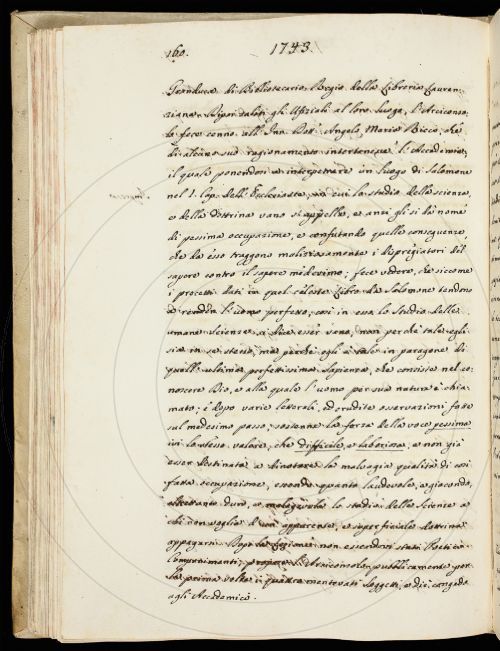 160. 1743.
Granduca di Bibliotecario Regio della Libreria Lauren-
ziana. Risaliti gli Ufiziali al loro luogo, l'Arciconso-
lo fece cenno all' Inn. Dott. Angelo Maria Ricci, che
di alcuno suo ragionamento intertenesse l'Accademia;
il quale ponendosi a interpetrare un luogo di Salomone
nel I. Cap. dell' Ecclesiaste, in cui lo studio della scienza,
e della dottrina vano si appella, e anzi gli si dà nome
di pessima occupazione, e confutando quelle conseguenze,
che da esso traggono maliziosamente i dispregiatori del
sapere contro il sapere medesimo; fece vedere, che siccome
i precetti dati in quel celeste Libro da Salomone tendono
a render l'uomo perfetto; così in esso lo studio delle
umane scienze si dice esser vano, non perchè tale egli
sia in se stesso, ma perchè egli è tale in paragone di
quell' ultima perfettissima sapienza, che consiste nel co-
noscere Dio, e alla quale l'uomo per sua natura è chia-
mato; e dopo varie letterali, ed erudite osservazioni fatte
sul medesimo passo, sostenne la forza della voce pessima
ivi lo stesso valere, che difficile, e laboriosa, e non già
esser destinata a dinotare la malvagia qualità di così
fatta occupazione, essendo quanto laudevole, e gioconda,
altrettanto duro, e malagevole lo studio delle scienze a
chi non voglia d'un' apparente, e superficiale dottrina
appagarsi. Dopo la Lezione non essendovi stati Poetici
Componimenti, propose l'Arciconsolo pubblicamente per
la prima volta i quattro mentovati Soggetti, e diè congedo
agli Accademici.